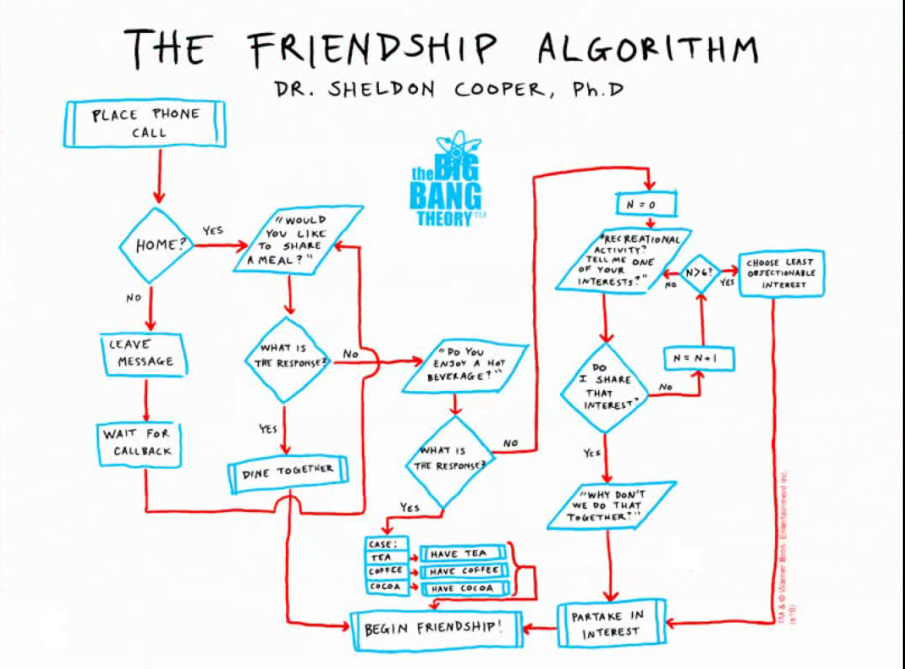 THE FRIENDSHIP ALGORITHM
DR. SHELDON COOPER, Ph.D
PLACE PHONE
CALL
HOME?
YES
NO
LEAVE
MESSAGE
WAIT FOR
CALLBACK
"WOULD
YOU LIKE
TO SHARE
A MEAL?"
WHAT IS
THE RESPONSE?
No
YES
DINE TOGETHER
the BIG
BANG
THEORY™
"DO YOU
ENJOY A HOT
BEVERAGE?"
WHAT IS
THE RESPONSE?
NO
YES
CASE:
TEA
HAVE TEA
COFFEE
HAVE COFFEE
COCOA
HAVE COCOA
BEGIN FRIENDSHIP!
N = 0
"RECREATIONAL
ACTIVITY?
TELL ME ONE
OF YOUR
INTERESTS?"
N>6?
NO
YES
CHOOSE LEAST
OBJECTIONABLE
INTEREST
N = N+1
DO
I SHARE
THAT
INTEREST?
No
YES
"WHY DON'T
WE DO THAT
TOGETHER?"
PARTAKE IN
INTEREST
TM & © Warner Bros. Entertainment Inc.
(s10)